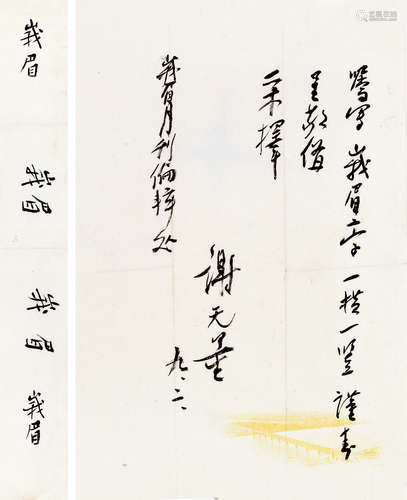 嘱写峨眉二字一横一竖谨寿
呈敬备
采择
峨眉月刊编辑处
谢天量
九.二.
峨眉
峨眉
峨眉
峨眉